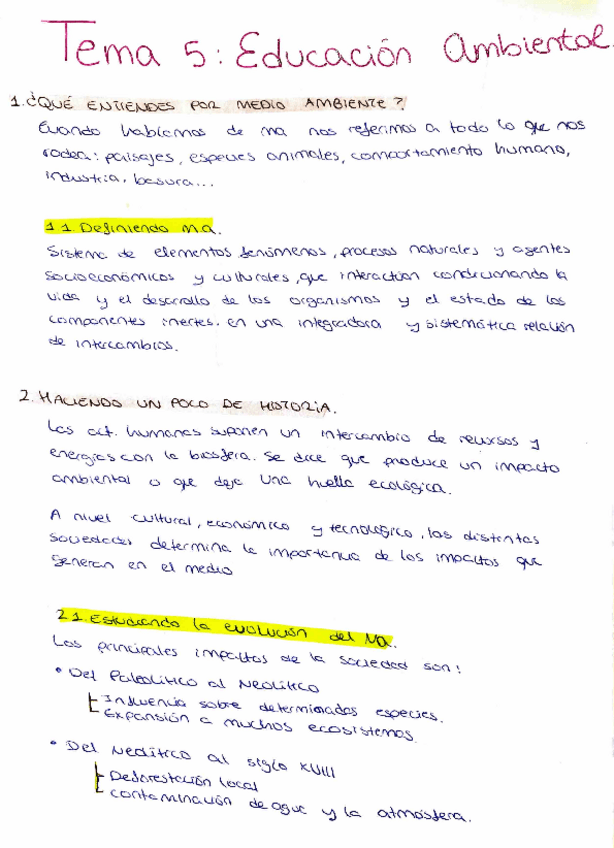 Tema 5: Educación Ambiental.
1. ¿QUÉ ENTIENDES POR MEDIO AMBIENTE?
Cuando hablamos de ma nos referimos a todo lo que nos
rodea: paisajes, especies animales, comportamiento humano,
industria, basura...
1.1. Definiendo ma.
Sistema de elementos, fenómenos, procesos naturales y agentes
socioeconómicos y culturales, que interactúan condicionando la
vida y el desarrollo de los organismos y el estado de los
componentes inertes. en una integradora y sistemática relación
de intercambios.
2. HACIENDO UN POCO DE HISTORIA.
Las act. humanas suponen un intercambio de recursos y
energías con la biosfera. Se dice que produce un impacto
ambiental o que deja una huella ecológica.
A nivel cultural, económico y tecnológico, las distintas
sociedades determina la importancia de los impactos que
generan en el medio
2.1. Estudiando la evolución del Ma.
Los principales impactos de la sociedad son:
• Del Paleolítico al Neolítico
Influencia sobre determinadas especies.
Expansión a muchos ecosistemas.
• Del Neolítico al siglo XVIII
Deforestación local
contaminación de agua y la atmósfera.